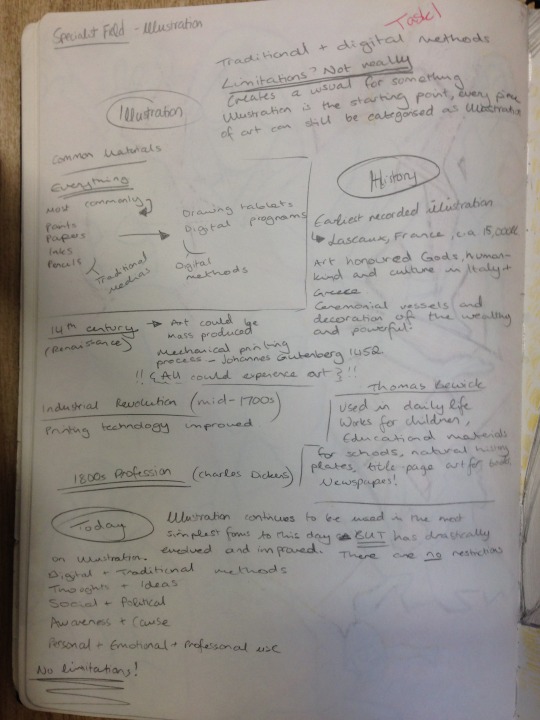 Specialist Field - Illustration
Task 1
Traditional + digital methods
Limitations? Not really
Creates a visual for something
Illustration is the starting point, every piece
of art can still be categorised as Illustration
Illustration
Common Materials
Everything
Most commonly
Paints
Papers
Inks
Pencils
Traditional
medias
Drawing tablets
Digital programs
Digital
methods
History
Earliest recorded illustration
Lascaux, France, circa 15,000
Art honoured Gods, human-
kind and culture in Italy +
Greece
Ceremonial vessels and
decoration of the wealthy
and powerful!
14th century → Art could be
(Renaissance) mass produced
Mechanical printing
process - Johannes Gutenberg 1452
!! { All could experience art } !!
Industrial Revolution (mid-1700s)
Printing technology improved
Thomas Bewick
Used in daily life
Works for children,
Educational materials
for schools, natural history
plates, title page art for books
Newspapers!
1800s Profession (Charles Dickens)
Today
Illustration continues to be used in the most
simplest forms to this day BUT has drastically
evolved and improved. There are no restrictions
on illustration.
Digital + Traditional methods
Thoughts + Ideas
Social + Political
Awareness + Cause
Personal + Emotional + Professional use
No limitations!